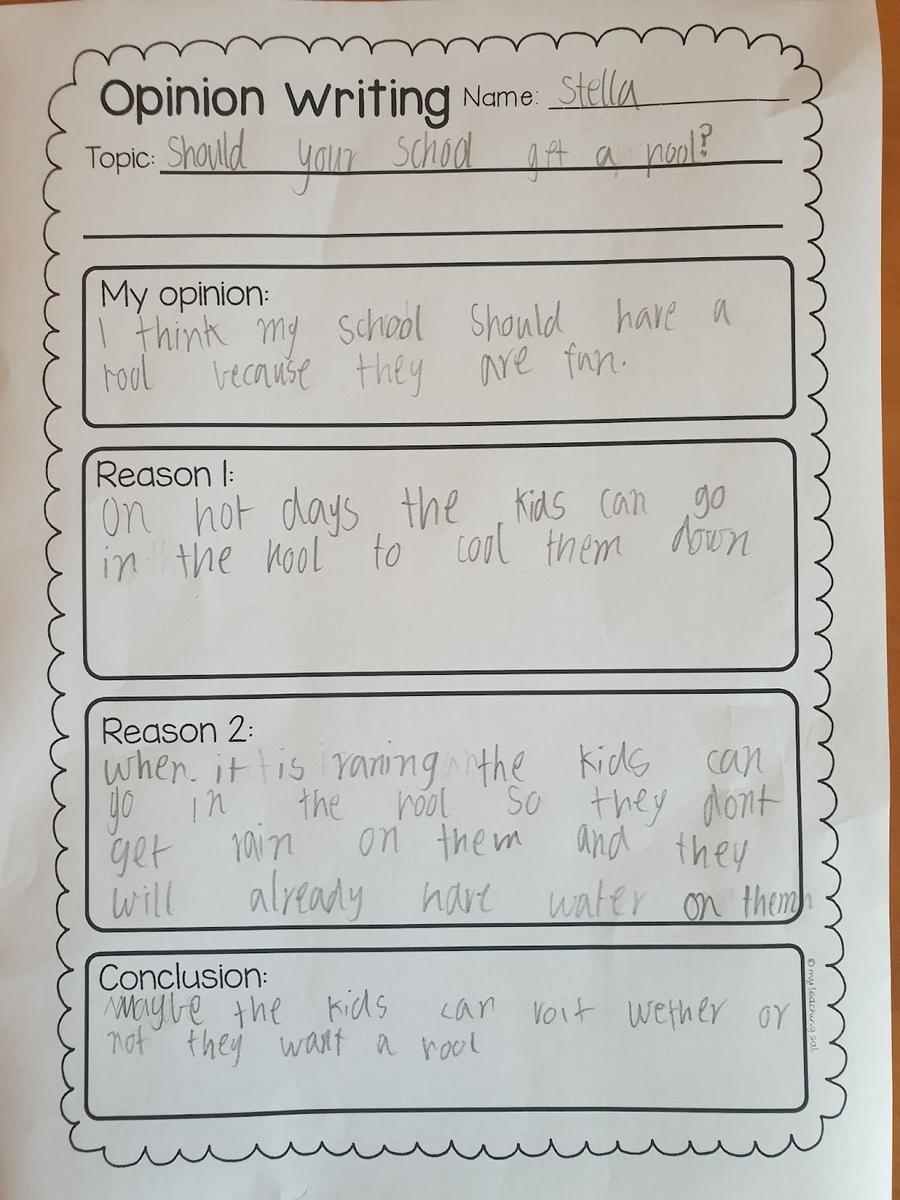 Opinion Writing Name: Stella
Topic: Should your school get a pool?
My opinion:
I think my school should have a
pool because they are fun.
Reason 1:
On hot days the kids can go
in the pool to cool them down
Reason 2:
when it is raning the kids can
go in the pool so they dont
get rain on them and they
will already have water on them
Conclusion:
Maybe the kids can voit wether or
not they want a pool
© myteachingpal